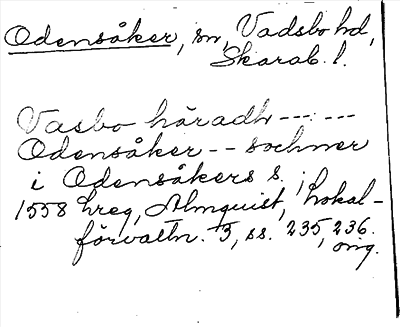 Odensåker, sn, Vadsbo hd,
Skarab. l.
Vasbo häradh --- : ---
Odensåker -- sochner
i Odensåkers s.
1558 hreg, Almquist, Lokal-
förvaltn. 3, ss. 235, 236.
orig.